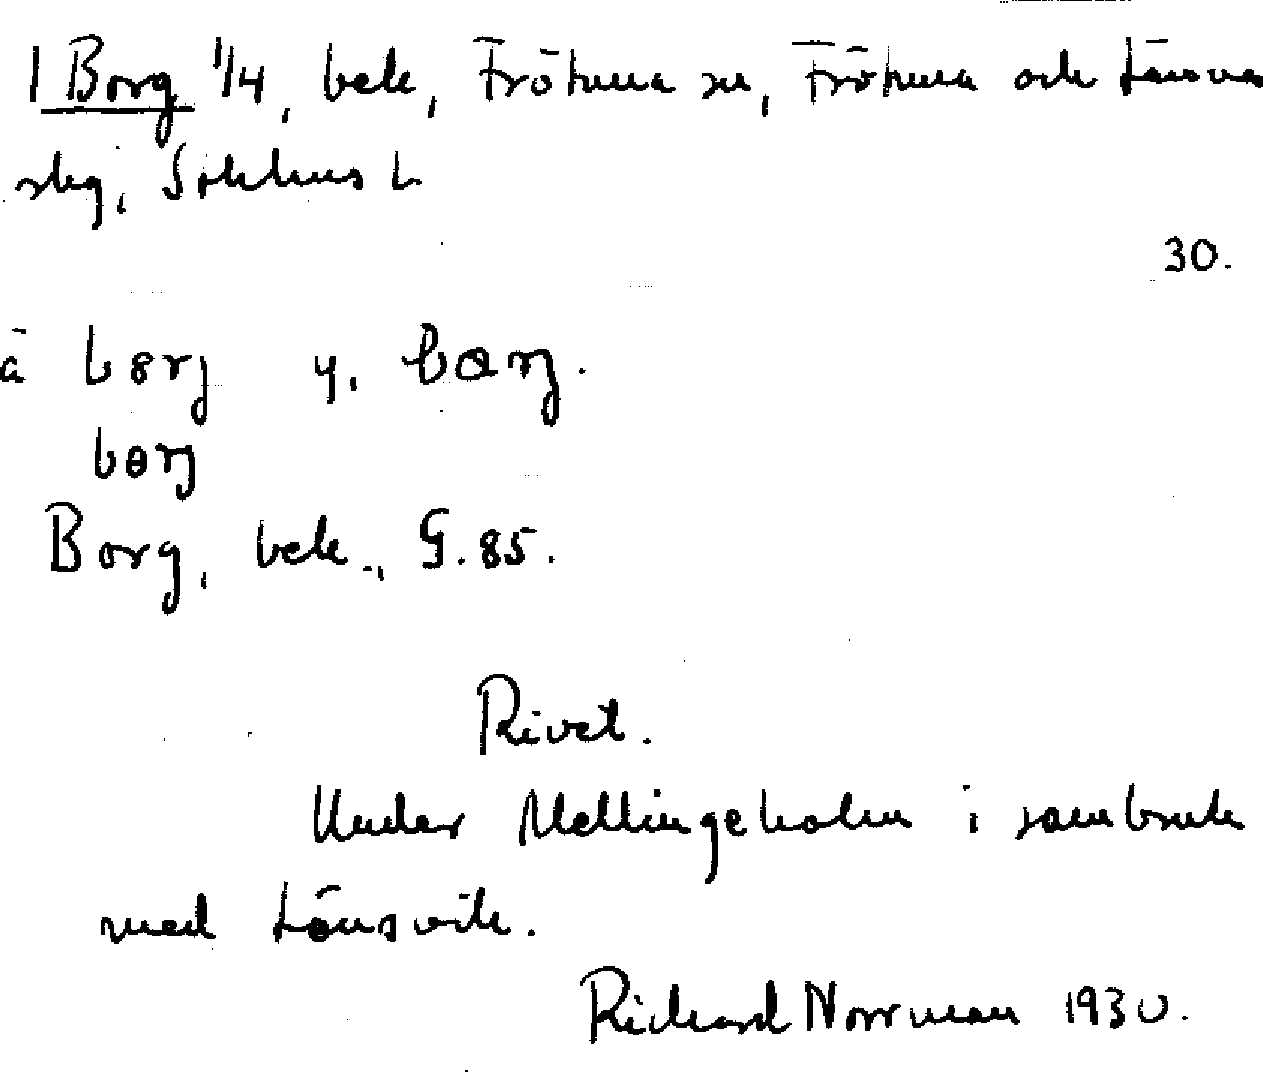 1 Borg 1/4, bek, Frötuna sn, Frötuna och Länna
sklg, Sthlms L
30.
å bərj y, bɷrj.
bɵrj
Borg, bek., G. 85.
Rivet.
Under Mellingeholm i sambruk
med Lönsvik.
Richard Norrman 1930.